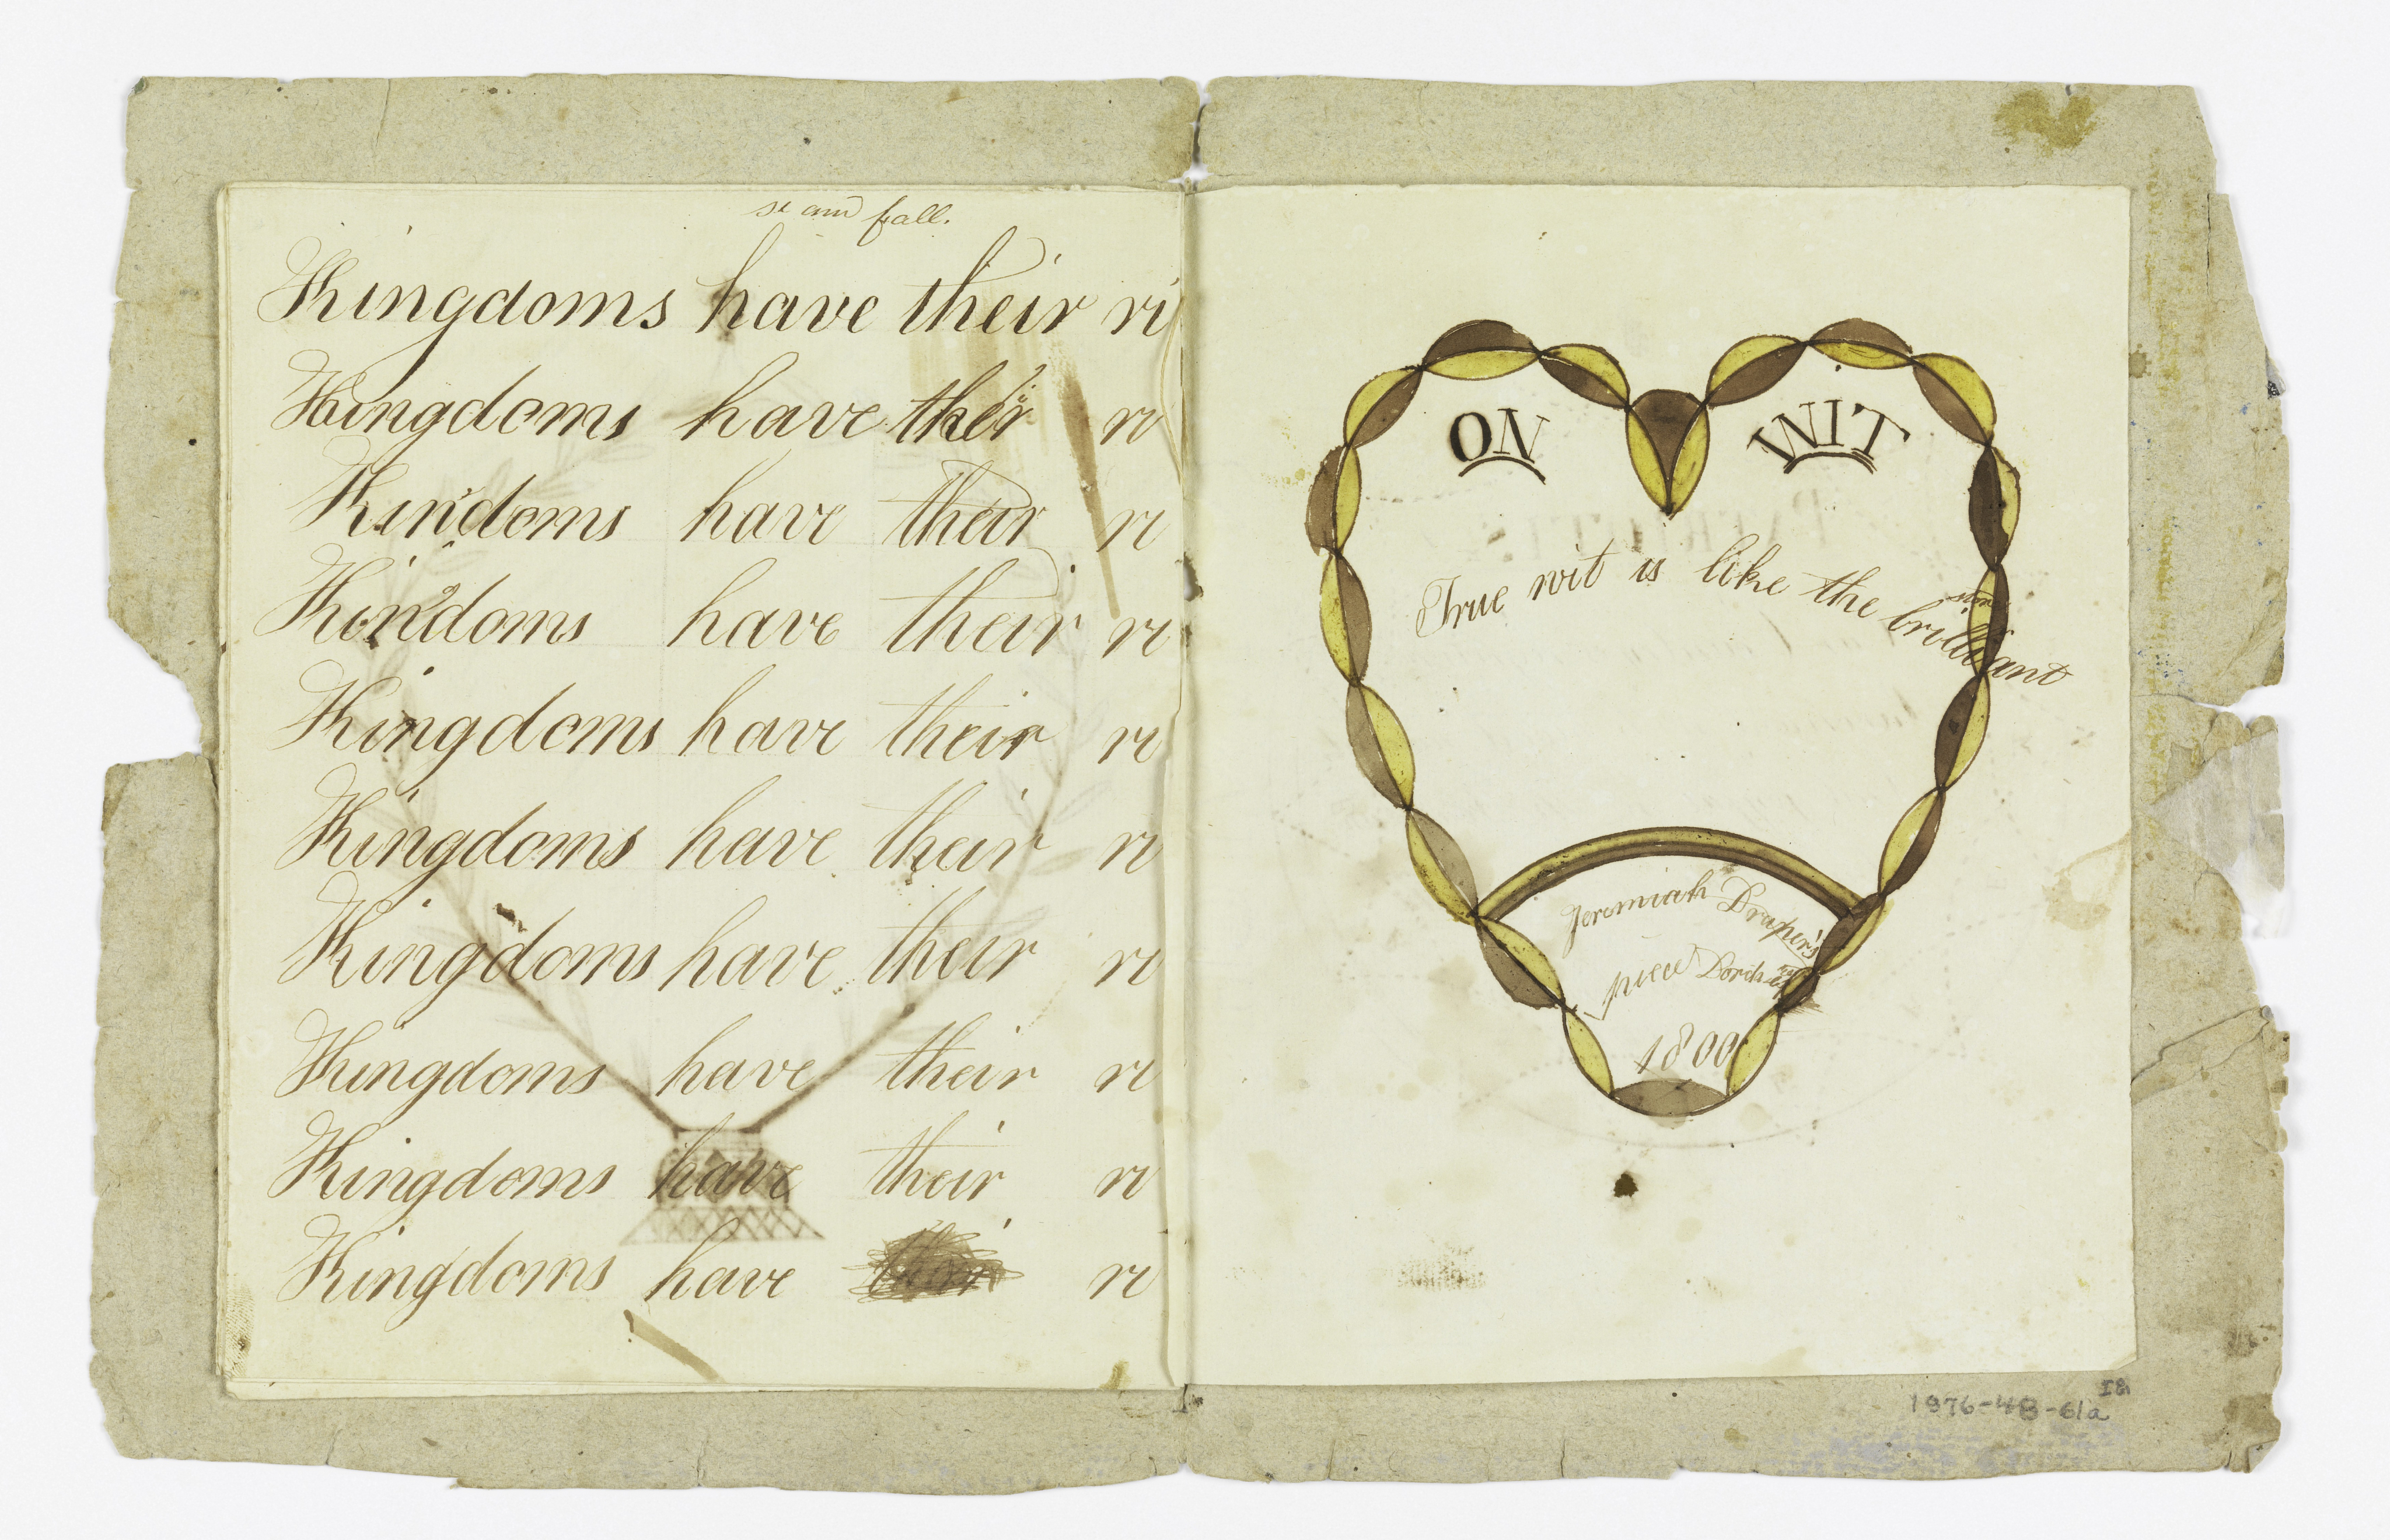 se and fall.
Kingdoms have their ri
Kingdoms have their ri
Kindoms have their ri
Kingdoms have their ri
Kingdoms have their ri
Kingdoms have their ri
Kingdoms have their ri
Kingdoms have their ri
Kingdoms have their ri
Kingdoms have their ri
ON WIT
True wit is like the brilliant
stone
Jeremiah Draper's
piece Dorchester
1800
1976-48-61a